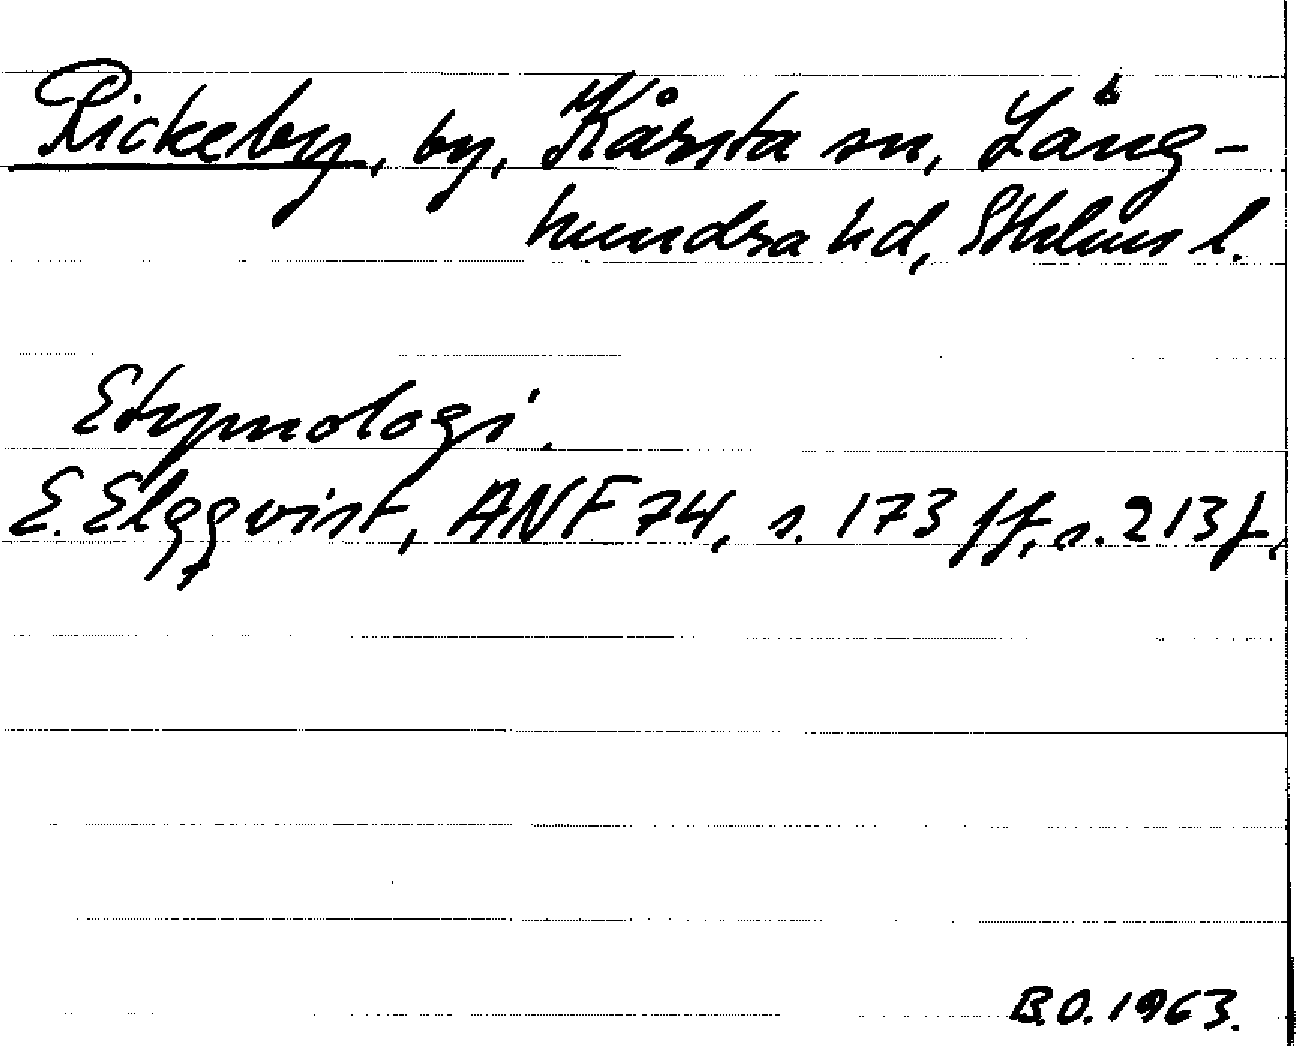 Rickeby, by, Kårsta sn, Lång-
hundra hd, Sthlms l.
Etymologi.
E. Elgqvist, ANF 74, s. 173 ff, s. 213 f.
B.O. 1963.